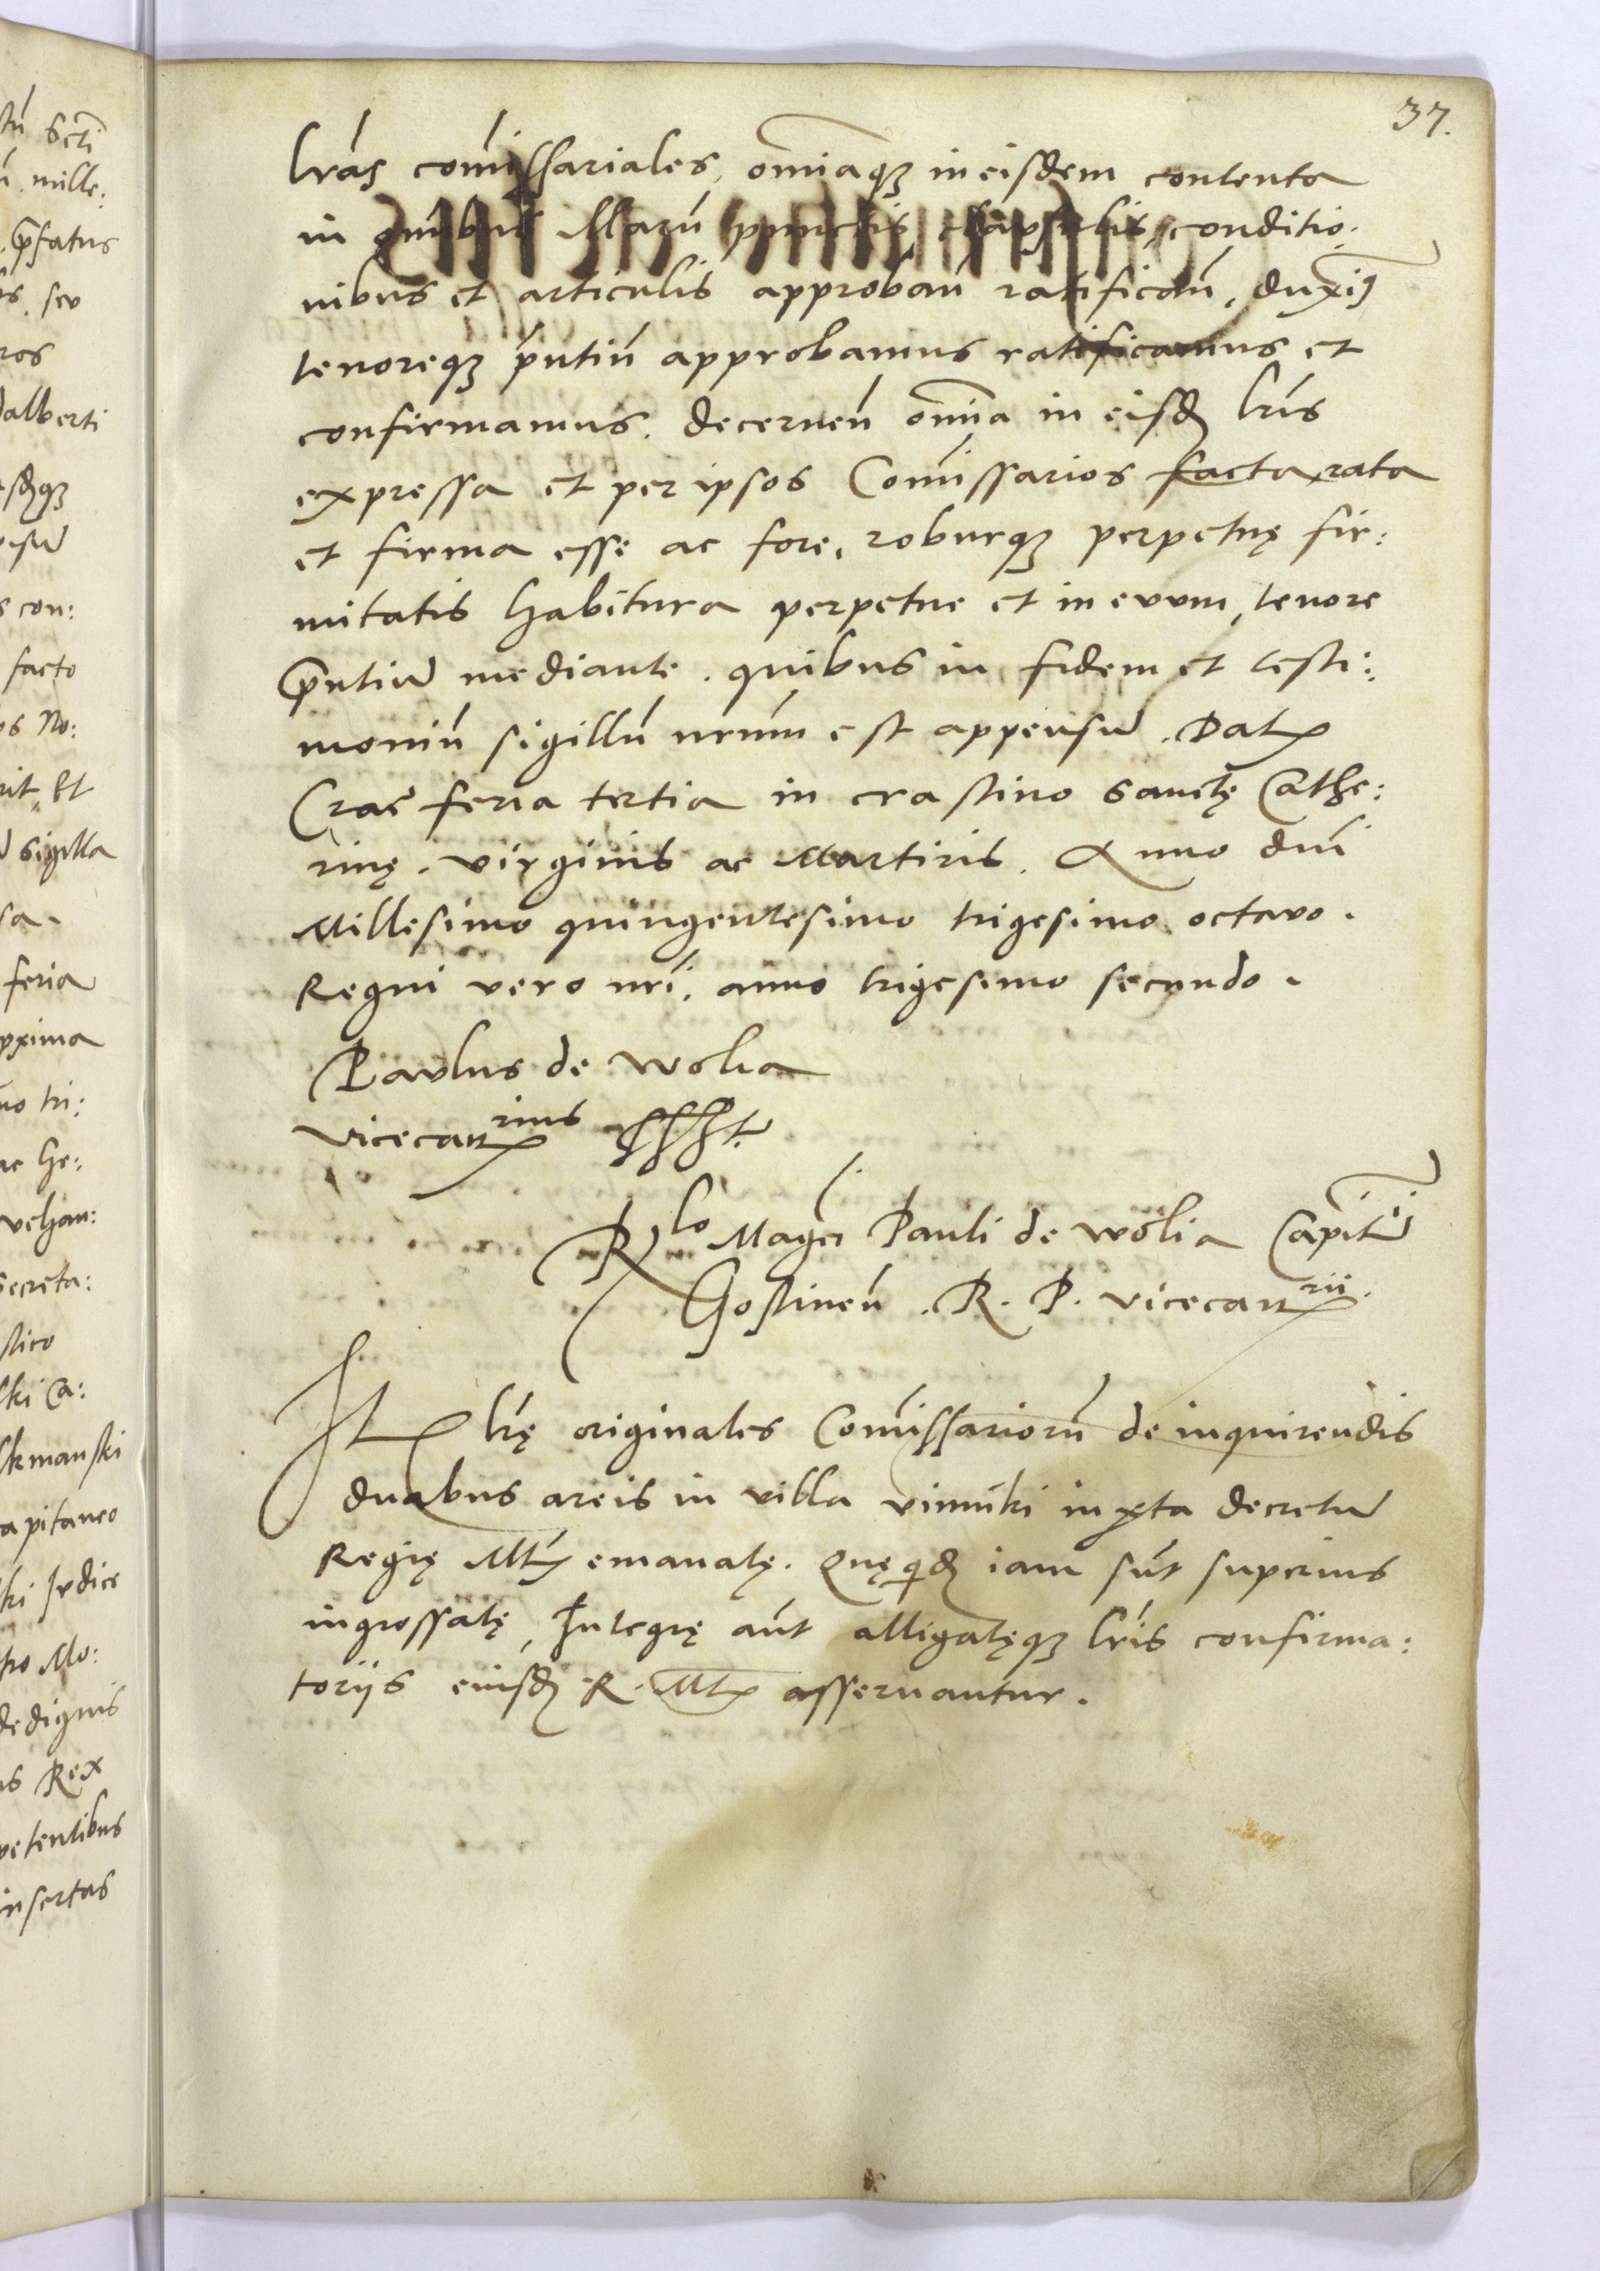 37.
lrãs comissariales, omniaqȝ in eisdem contenta
in omnibus illarũ punctis clapsulis, conditio:
nibus et articulis approbañ ratificañ, duxiꝯ
tenoreqȝ pñtiũ approbamus ratificamus et
confirmamus. decerneñ omnia in eisdẽ lrĩs
expressa et per ipsos Comissarios facta rata
et firma esse ac fore, roburqȝ perpetuę fir:
mitatis habitura perpetue et in evum, tenore
p̃ntiũ mediante. quibus in fidem et testi:
moniũ sigillũ nrũm est appensũ. Datꝭ
Crac̃ feria tertia in crastino sanctę Cathe:
rinę. virginis ac Martiris. Anno dnĩ
Millesimo quingentesimo trigesimo octavo.
Regni vero nrĩ, anno trigesimo secundo.
Pavlus de wolia
vicecanꝭrius sssst.
Rlo Magci Pauli de wolia Capitñ
Gostineñ. R. P. vicecanꝭrii.
Itꝭ lrę̃ originales Comissariorũ de inquirendis
duabus areis in villa vinniki iuxta decretũ
Regię Mtꝭ emanatę. Quęqdẽ iam sũt superius
ingrossatę, Integrę aũt alligatęqȝ lrĩs confirma:
torijs eiusdẽ R. Mtꝭ asseruantur.
sctĩ
mille:
p̃fatus
seu
alberti
con:
facto
No:
Et
sigilla
feria
pxima
tri:
ac He:
secreta:
ski Ca:
apitaneo
ki Iudice
Mo:
Rex
petentibus
insertas